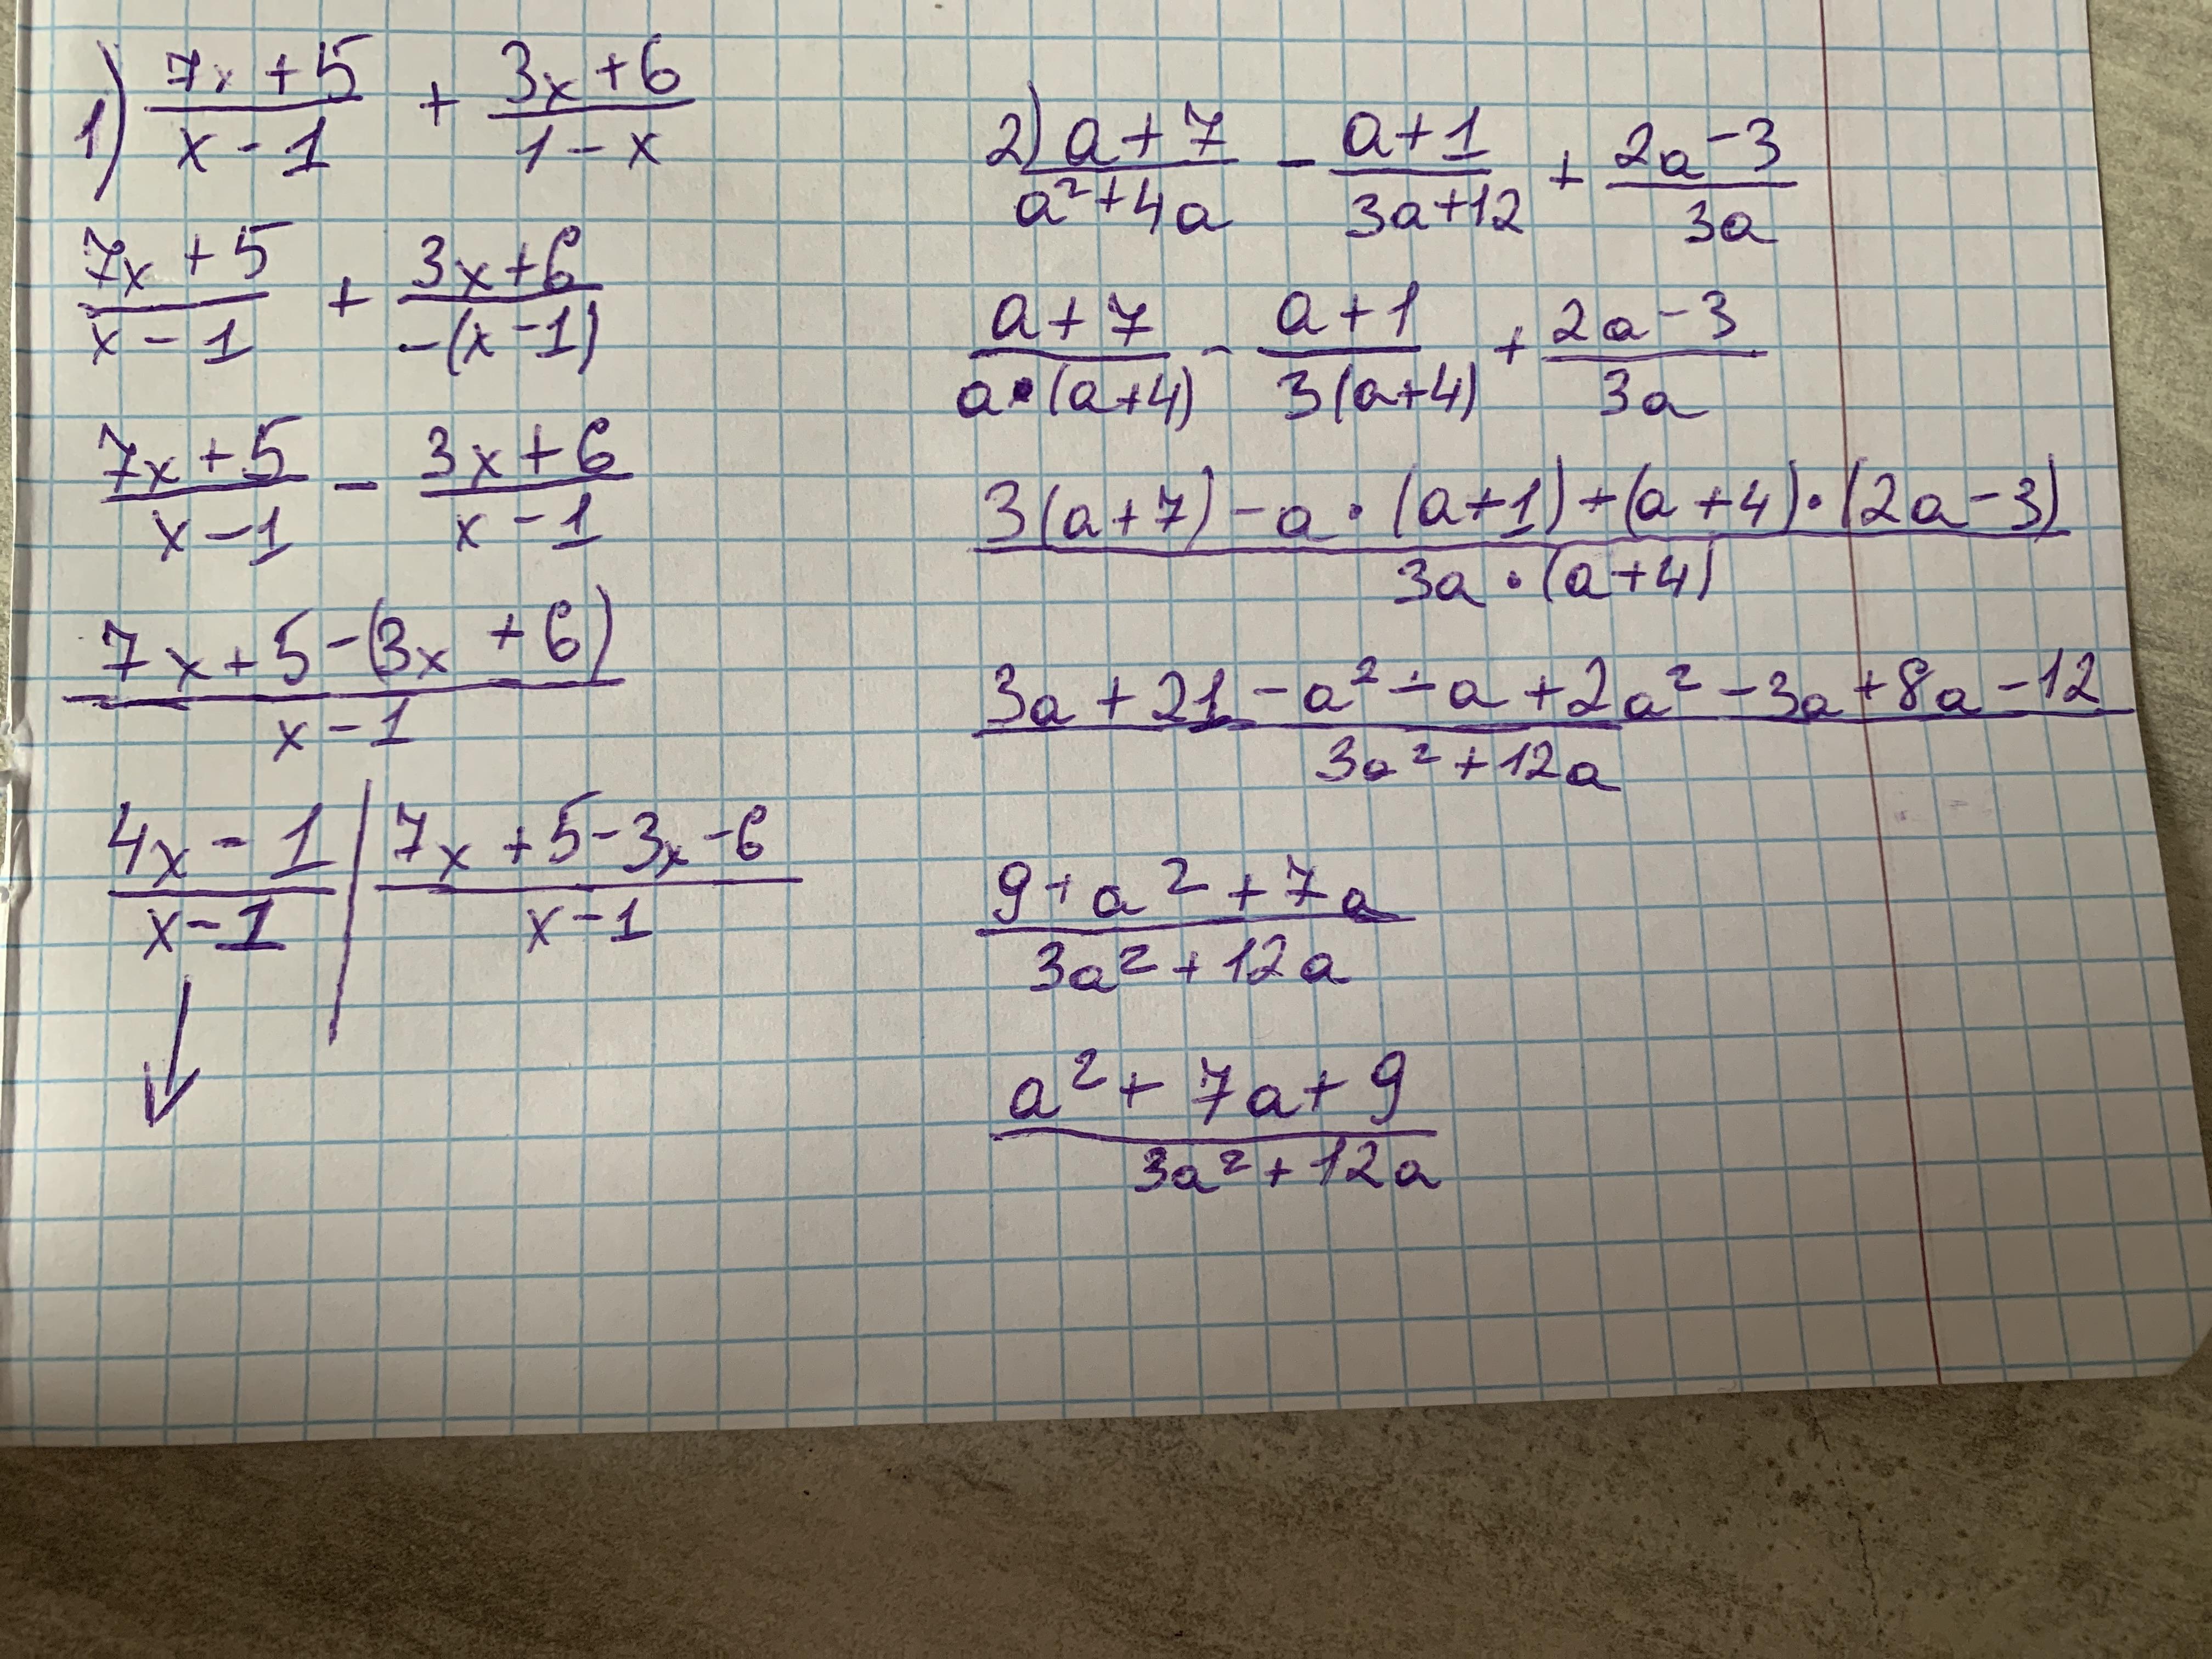 1) (7x+5)/(x-1) + (3x+6)/(1-x)
(7x+5)/(x-1) + (3x+6)/(-(x-1))
(7x+5)/(x-1) - (3x+6)/(x-1)
(7x+5-(3x+6))/(x-1)
(4x-1)/(x-1) | (7x+5-3x-6)/(x-1)
↓
2) (a+7)/(a²+4a) - (a+1)/(3a+12) + (2a-3)/(3a)
(a+7)/(a•(a+4)) - (a+1)/(3(a+4)) + (2a-3)/(3a)
(3(a+7)-a•(a+1)+(a+4)•(2a-3))/(3a•(a+4))
(3a+21-a²-a+2a²-3a+8a-12)/(3a²+12a)
(9+a²+7a)/(3a²+12a)
(a²+7a+9)/(3a²+12a)